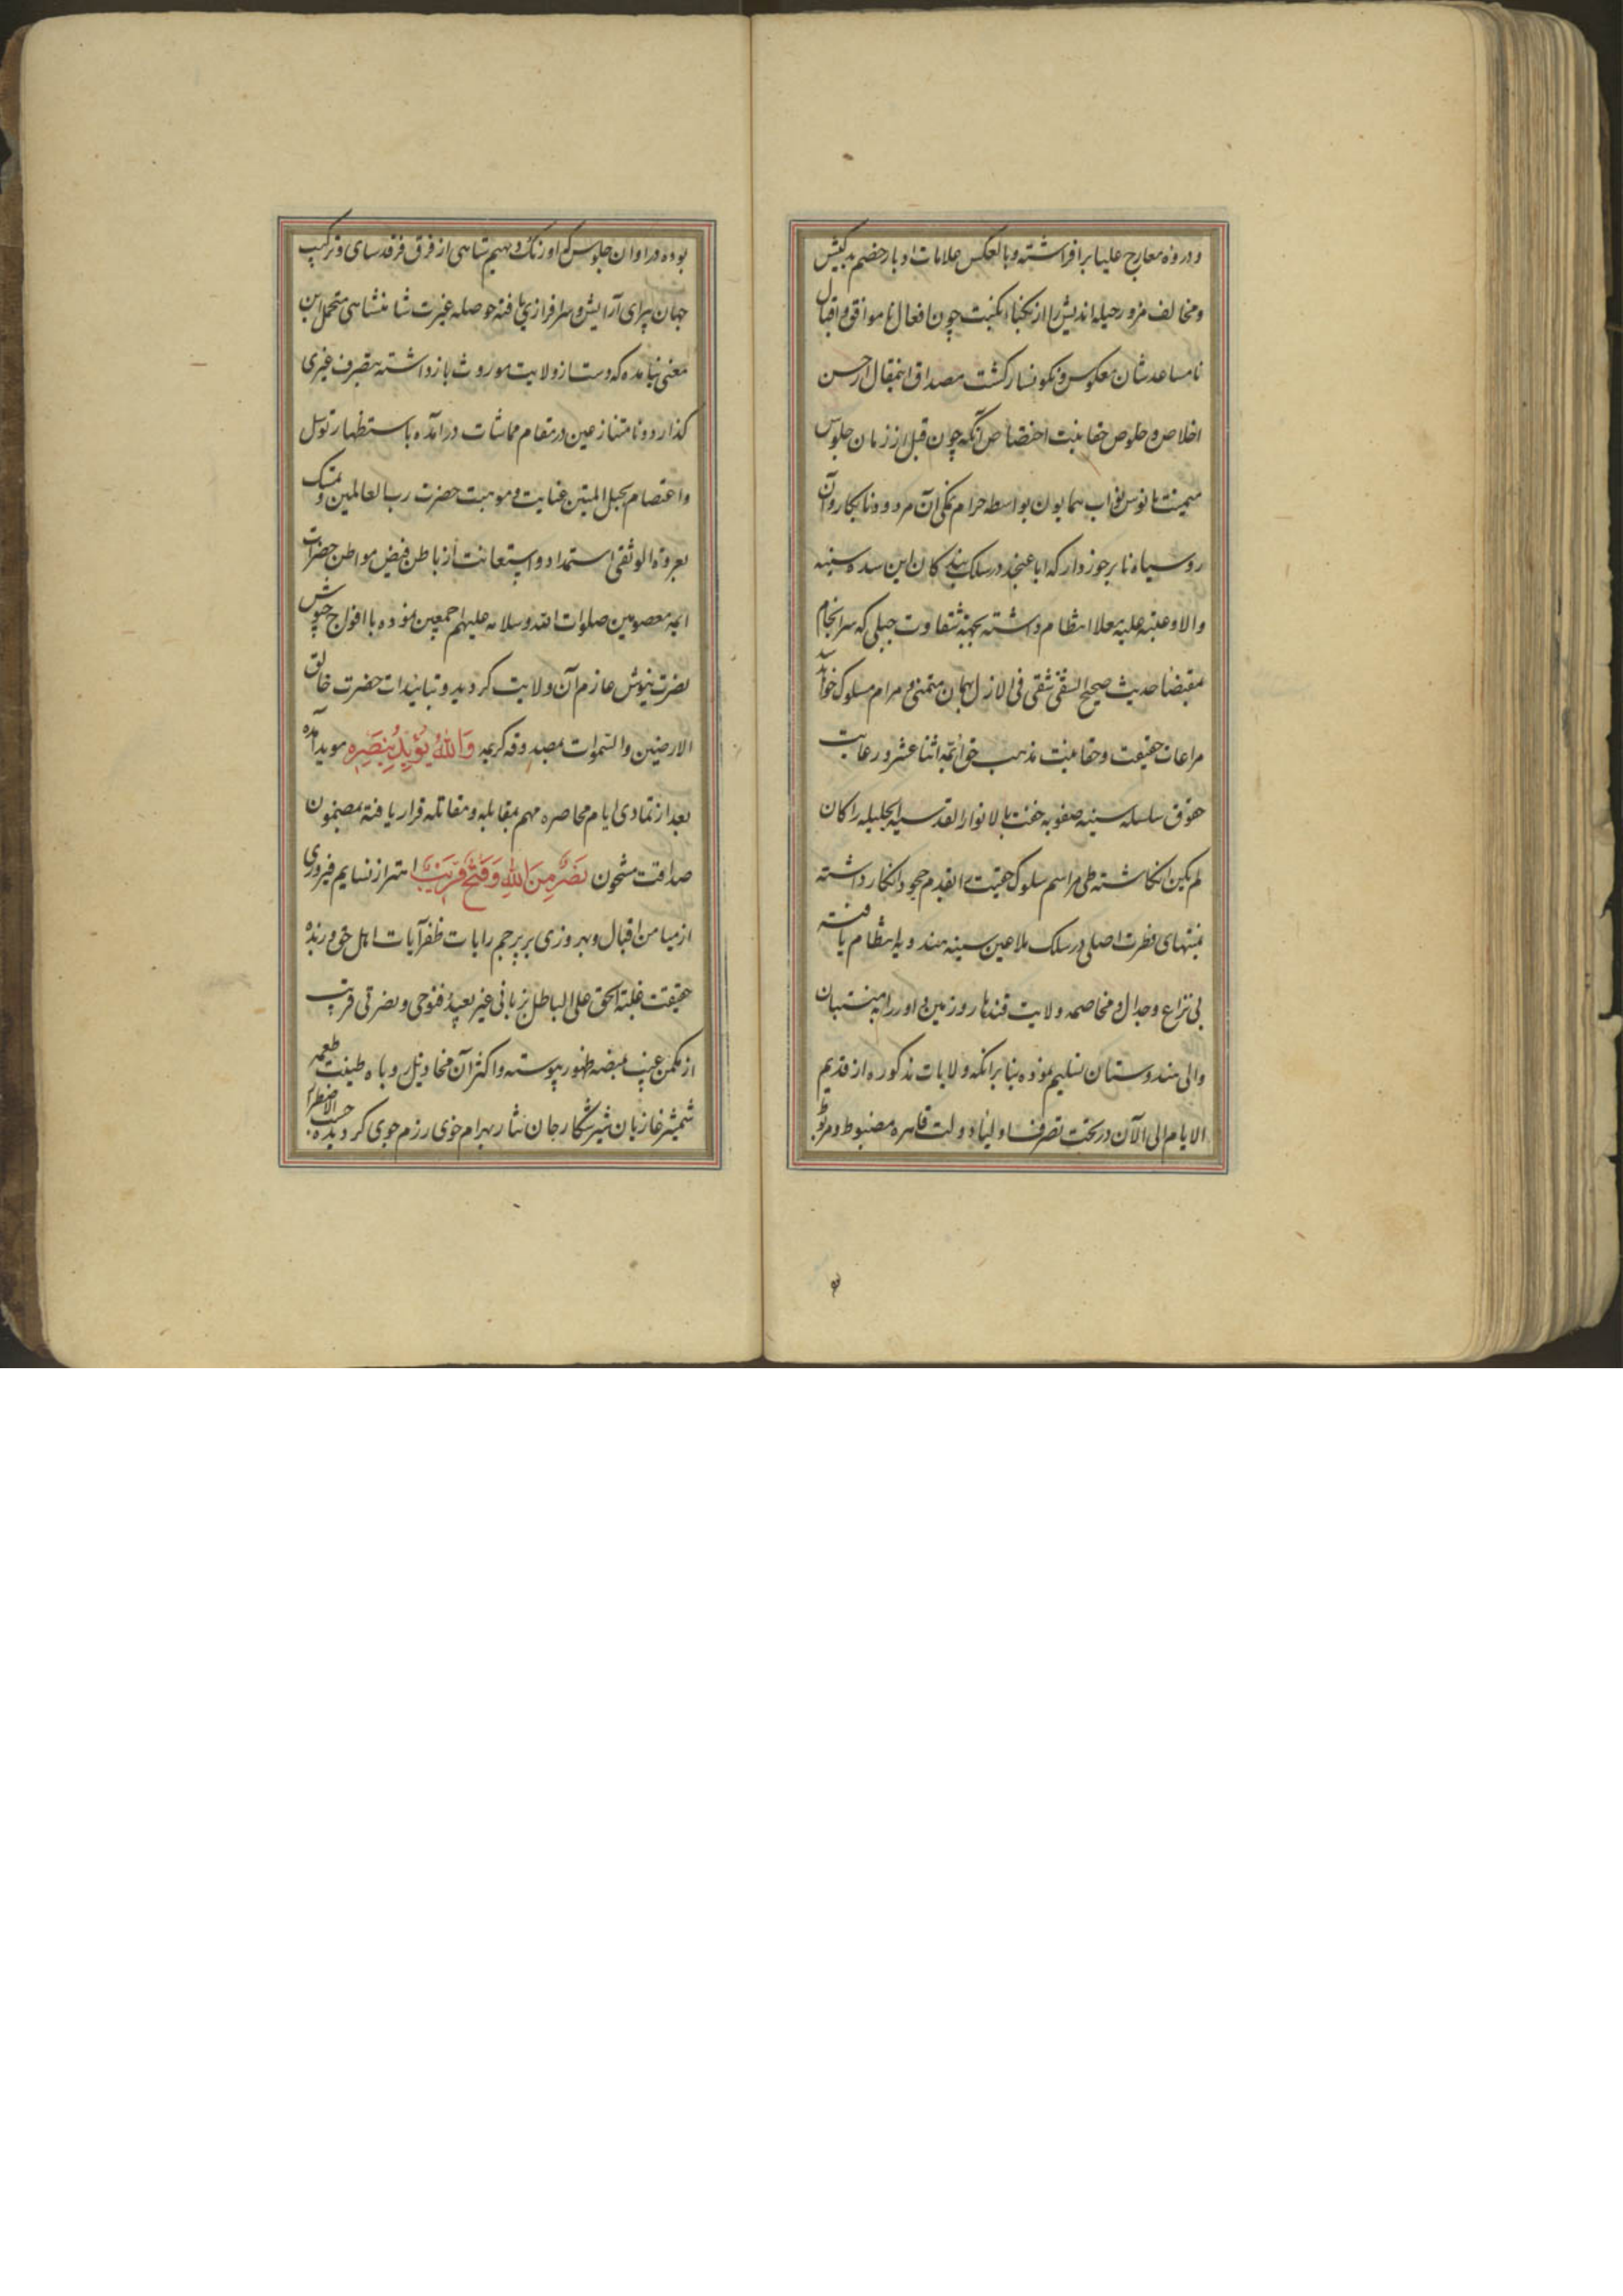 و در وزه معارج علیا برافراشته و بالعکس علامات ادبار خصم بدکیش
و مخالف مزور حیله اندیش را از نکبای نکبت چون افعال ناموافق و اقبال
نامساعدشان معکوس و نکونسار کشت مصداق اینمقال از حسن
اخلاص و خلوص حقانیت اختصاص آنکه چون قبل از زمان جلوس
میمنت مانوس نواب همایون بواسطه حرام نمکی آن مردود نابکار و آن
روسیاه نابرخوردار که اباعنجد در سلک بندکان این سده سنیه
والا و عتبه علیه معلا انتظام داشته بجهة شقاوت جبلی که سرانجام
مقتضا حدیث صحیح الشقی شقی فی الازل بهمان متمنی و مرام مسلوک خواند
مراعات حقیقت و حقانیت مذهب حق ائمه اثنا عشر و رعایت
حقوق سلسله سنیه صفویه حفت بالانوار القدسیه الجلیله را کان
لم یکن انکاشته طی مراسم سلوک حقیت را بقدم جحود و انکار داشته
بمنتهای فطرت اصلی در سلک ملاعین سنیه هندویه انتظام یافته
بی نزاع و جدال و مخاصمه ولایت قندهار و زمین داور را به منتسبان
والی هندوستان تسلیم نموده بنابر انکه ولایات مذکوره از قدیم
الایام الی الآن در تحت تصرف اولیاء دولت قاهره مضبوط و مربوط
بوده در اوان جلوس که اورنک و دیهیم شاهی از فرق فرقدسای و ترکیب
جهان پیرای آرایش و سرافرازی یافته حوصله غیرت شاهنشاهی متحمل این
معنی نیامده که دست از ولایت موروث بازداشته بتصرف غیری
کذارد و با متنازعین در مقام مماشات درآمده باستظهار توسل
و اعتصام بحبل المتین عنایت و موهبت حضرت رب العالمین و تمسک
بعروة الوثقی استمداد و استعانت از باطن فیض مواطن حضرات
ائمه معصومین صلوات الله و سلامه علیهم اجمعین نموده با افواج جیوش
نصرت نیوش عازم آن ولایت کردید و بتاییدات حضرت خالق
الارضین والسموات بمصدوقه کریمه وَاللهُ یُؤَیِّدُ بِنَصْرِهِ موید آمده
بعد از تمادی ایام محاصره مهم بمقابله و مقاتله قرار یافته بمضمون
صداقت مشحون نَصْرٌ مِنَ اللهِ وَفَتْحٌ قَرِیبٌ اهتزاز نسایم فیروزی
از میامن اقبال و بهروزی بر پرچم رایات ظفرآیات اهل حق وزیده
حقیقت غلبة الحق علی الباطل بزبانی غیر بعید فتوحی و نصرتی قریب
از مکمن غیب بمنصه ظهور پیوسته و اکثر آن مخاذیل روباه طینت طعمه
شمشیر غازیان شیرشکار جان نثار بهرام خوی رزم جوی کردیده حسب الاضطرار